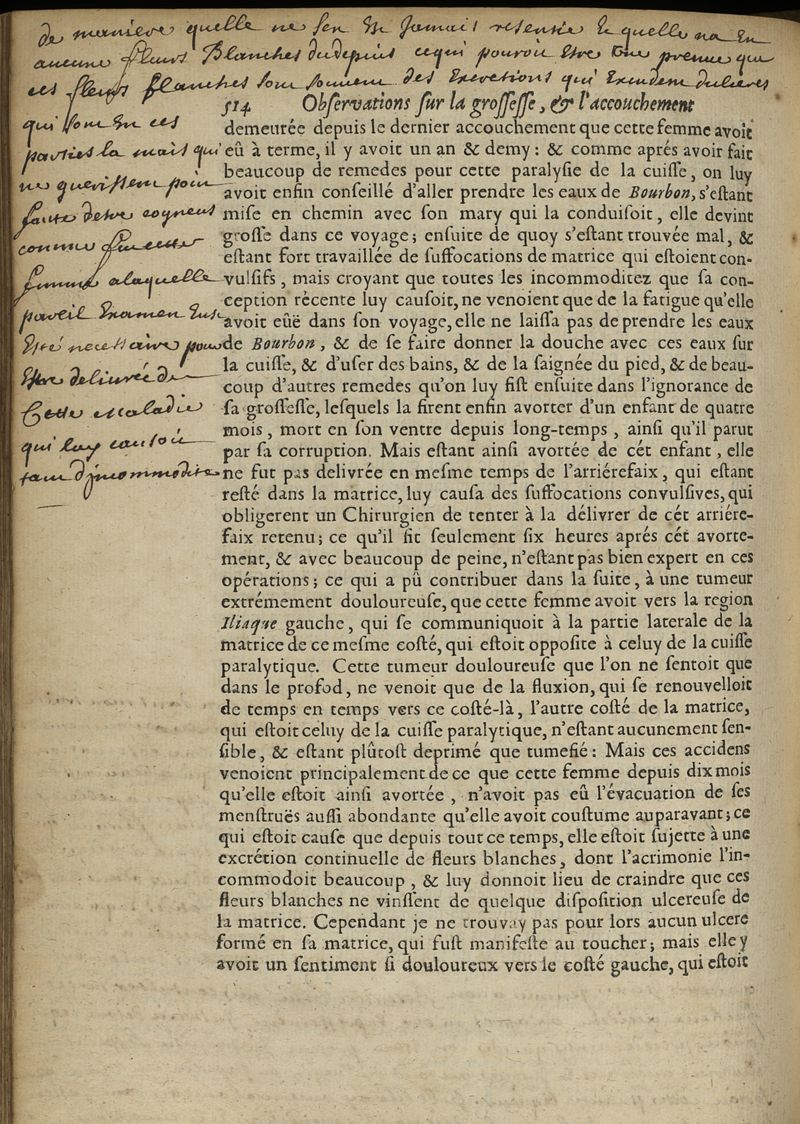 de maniere quelle ne sen est Jamais resentie & quelle na eu
aucune fleurs Blanches du depuis ce qui pouroit estre une preuve que
ces fleurs blanches sont souvent des Excretions qui
514 Obſervations ſur la groſſeſſe, & l'accouchement
qui sont en ces
parties la mais qui
ne guerissent point
faute destre cogneus
comme
femme a laquelle
pareil Examen
esté necessaire pour
estre deliurée de
Cette maladie
qui luy causoit
tant d'jncommodité
demeurée depuis le dernier accouchement que cette femme avoit
eû à terme, il y avoit un an & demy : & comme aprés avoir fait
beaucoup de remedes pour cette paralyſie de la cuiſſe, on luy
avoit enfin conſeillé d'aller prendre les eaux de Bourbon, s'eſtant
miſe en chemin avec ſon mary qui la conduiſoit, elle devint
groſſe dans ce voyage; enſuite de quoy s'eſtant trouvée mal, &
eſtant fort travaillée de ſuffocations de matrice qui eſtoient con-
vulſifs, mais croyant que toutes les incommoditez que ſa con-
ception récente luy cauſoit, ne venoient que de la fatigue qu'elle
avoit eûë dans ſon voyage, elle ne laiſſa pas de prendre les eaux
de Bourbon, & de ſe faire donner la douche avec ces eaux ſur
la cuiſſe, & d'uſer des bains, & de la ſaignée du pied, & de beau-
coup d'autres remedes qu'on luy fiſt enſuite dans l'ignorance de
ſa groſſeſſe, leſquels la firent enfin avorter d'un enfant de quatre
mois, mort en ſon ventre depuis long-temps, ainſi qu'il parut
par ſa corruption. Mais eſtant ainſi avortée de cét enfant, elle
ne fut pas delivrée en meſme temps de l'arriérefaix, qui eſtant
reſté dans la matrice, luy cauſa des ſuffocations convulſives, qui
obligerent un Chirurgien de tenter à la délivrer de cét arriére-
faix retenu; ce qu'il fit ſeulement ſix heures aprés cét avorte-
ment, & avec beaucoup de peine, n'eſtant pas bien expert en ces
opérations; ce qui a pû contribuer dans la ſuite, à une tumeur
extrémement douloureuſe, que cette femme avoit vers la region
Iliaque gauche, qui ſe communiquoit à la partie laterale de la
matrice de ce meſme coſté, qui eſtoit oppoſite à celuy de la cuiſſe
paralytique. Cette tumeur douloureuſe que l'on ne ſentoit que
dans le profod, ne venoit que de la fluxion, qui ſe renouvelloit
de temps en temps vers ce coſté-là, l'autre coſté de la matrice,
qui eſtoit celuy de la cuiſſe paralytique, n'eſtant aucunement ſen-
ſible, & eſtant plûtoſt deprimé que tumefié : Mais ces accidens
venoient principalement de ce que cette femme depuis dix mois
qu'elle eſtoit ainſi avortée, n'avoit pas eû l'évacuation de ſes
menſtruës auſſi abondante qu'elle avoit couſtume auparavant; ce
qui eſtoit cauſe que depuis tout ce temps, elle eſtoit ſujette à une
excrétion continuelle de fleurs blanches, dont l'acrimonie l'in-
commodoit beaucoup, & luy donnoit lieu de craindre que ces
fleurs blanches ne vinſſent de quelque diſpoſition ulcereuſe de
la matrice. Cependant je ne trouvay pas pour lors aucun ulcere
formé en ſa matrice, qui fuſt manifeſte au toucher; mais elle y
avoit un ſentiment ſi douloureux vers le coſté gauche, qui eſtoit